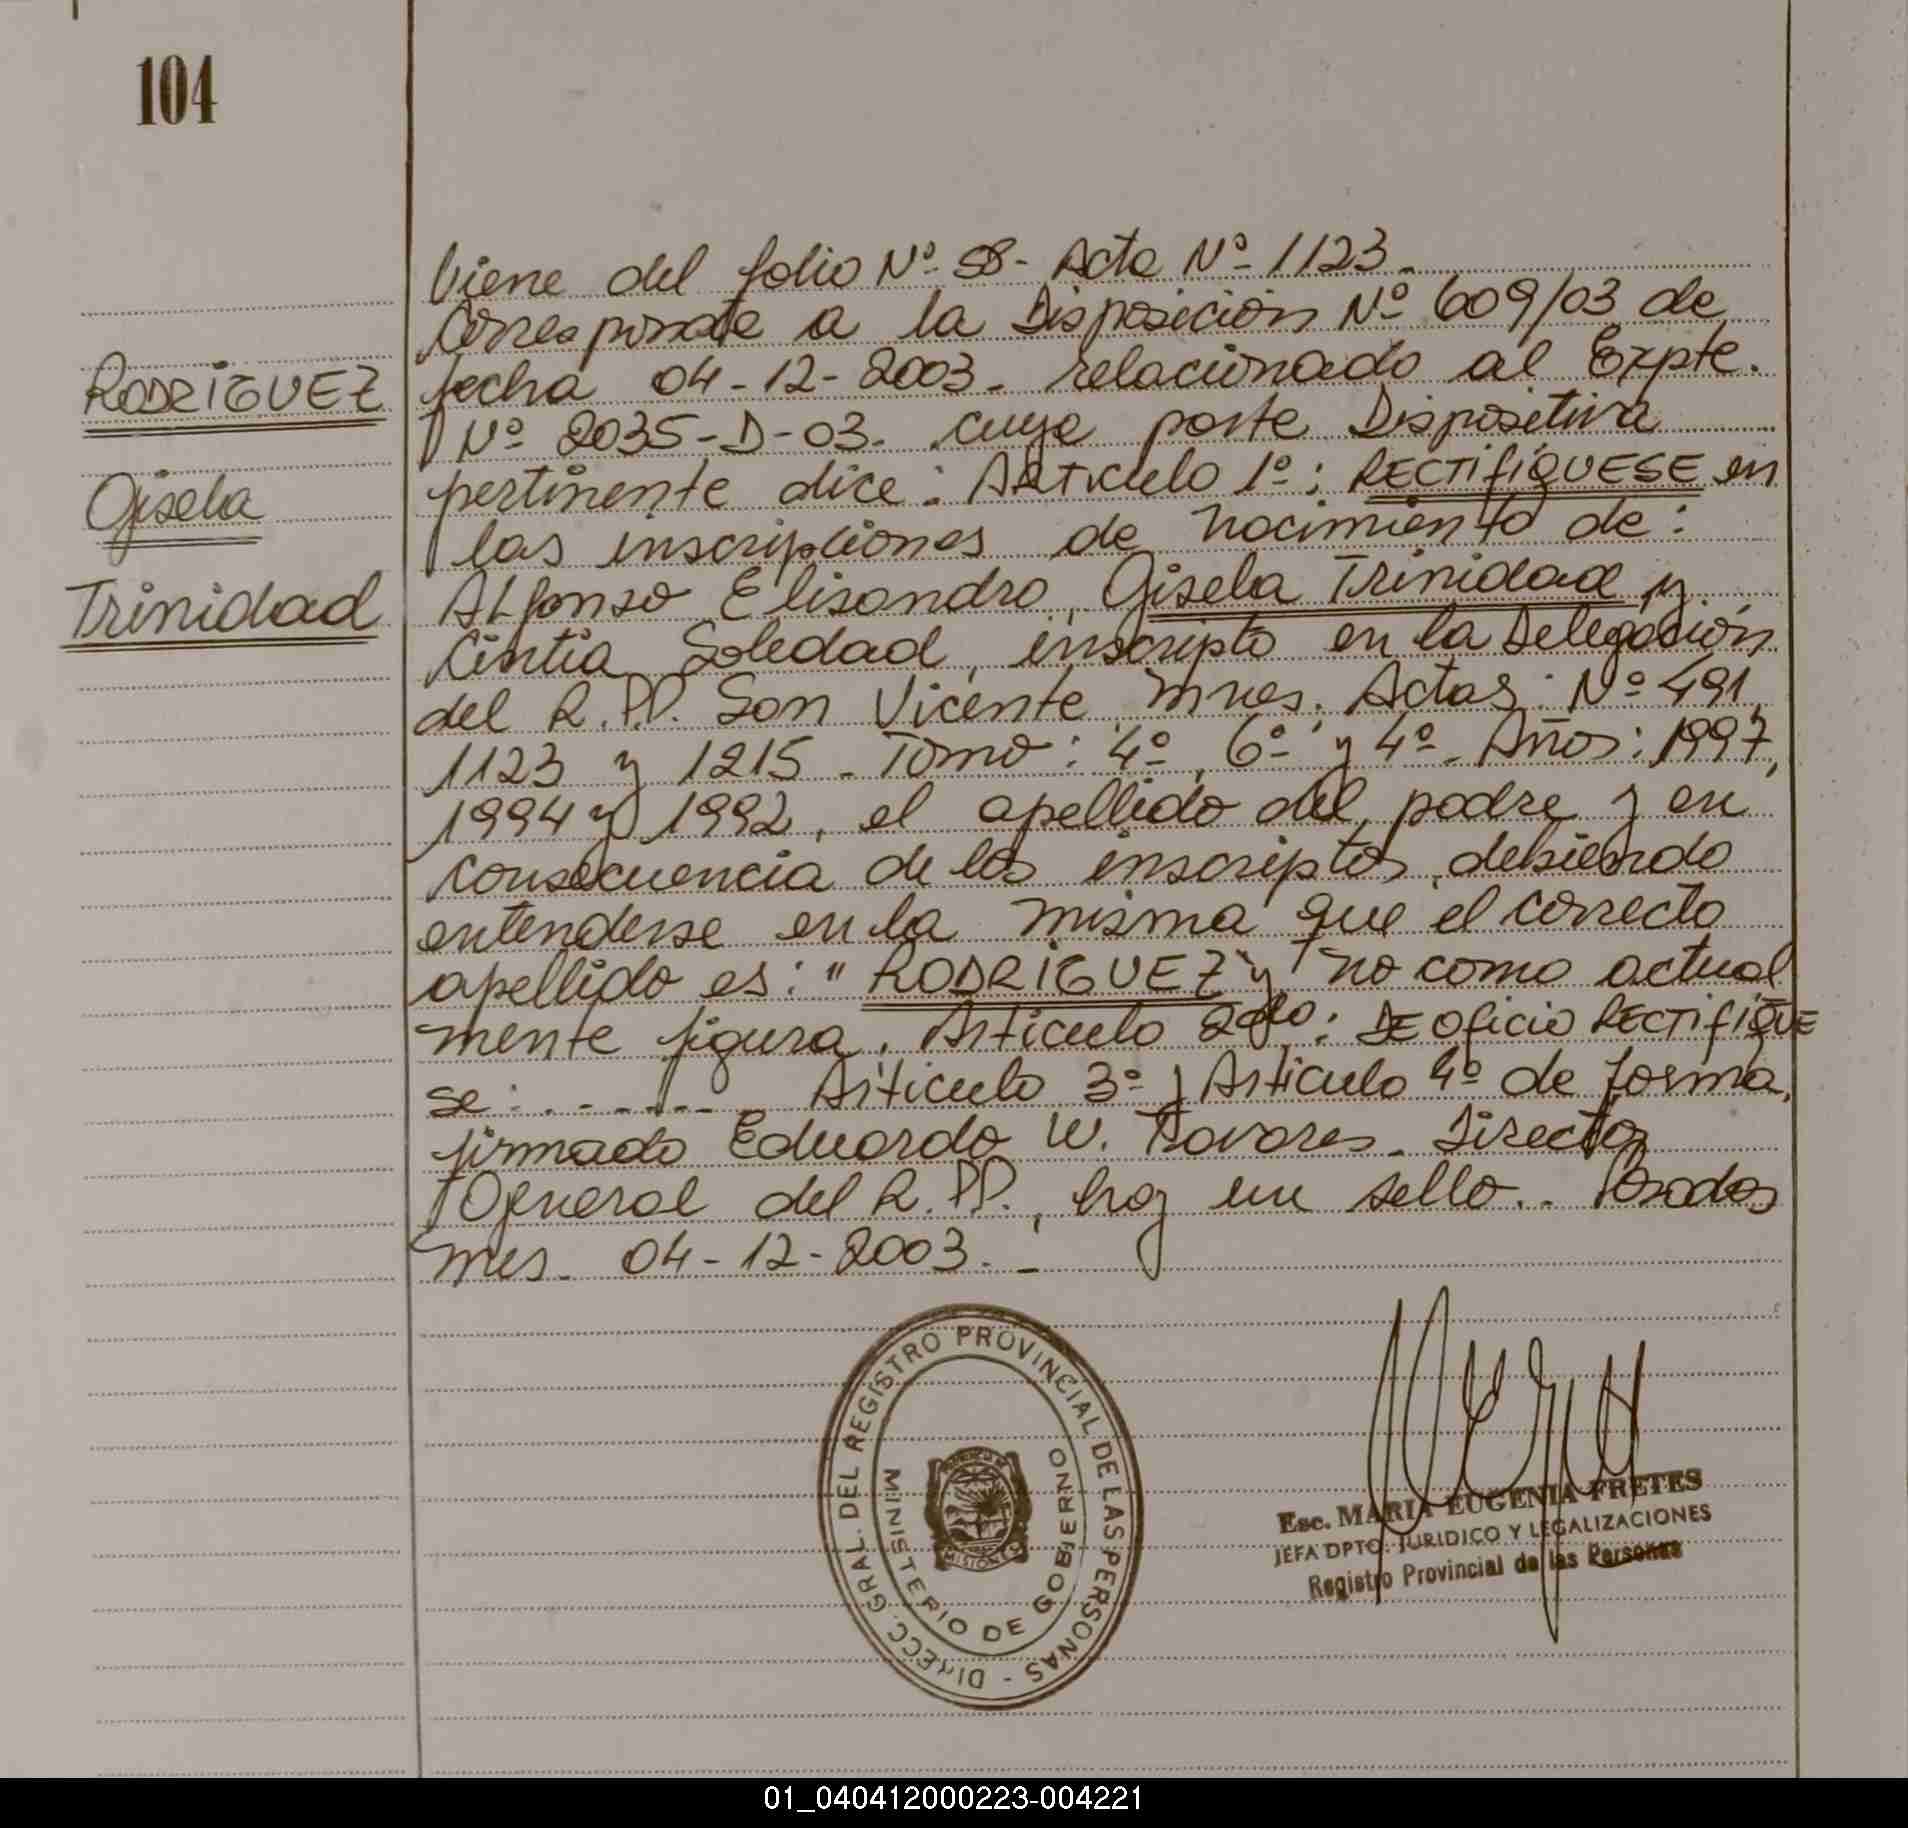 104
RODRIGUEZ
Gisela
Trinidad
Viene del folio Nº 58- Acta Nº 1123.
Corresponde a la Disposición Nº 609/03 de
fecha 04-12-2003. relacionado al Expte.
Nº 2035-D-03. cuya parte Dispositiva
pertinente dice: ARTICULO 1º: RECTIFIQUESE en
las inscripciones de nacimiento de:
Alfonso Elisandro, Gisela Trinidad y
Cintia Soledad, inscripto en la Delegación
del R.P.P. San Vicente, Mnes. Actas: Nº 491,
1123 y 1215 - Tomo: 4º, 6º y 4º - Años: 1997,
1994 y 1992, el apellido del padre y en
consecuencia de los inscriptos, debiendo
entenderse en la misma que el correcto
apellido es: "RODRIGUEZ" y no como actual
mente figura. Articulo 2do: DE oficio RECTIFIQUE
se: . - - - - - Articulo 3º y Articulo 4º de forma,
firmado Eduardo W. Tavares. Director
General del R.P.P., hay un sello.. Posadas
Mes. 04-12-2003. -
DIRECC. GRAL. DEL REGISTRO PROVINCIAL DE LAS PERSONAS -
MINISTERIO DE GOBIERNO
MISIONES
Esc. MARIA EUGENIA FRETES
JEFA DPTO. JURIDICO Y LEGALIZACIONES
Registro Provincial de las Personas
01_040412000223-004221